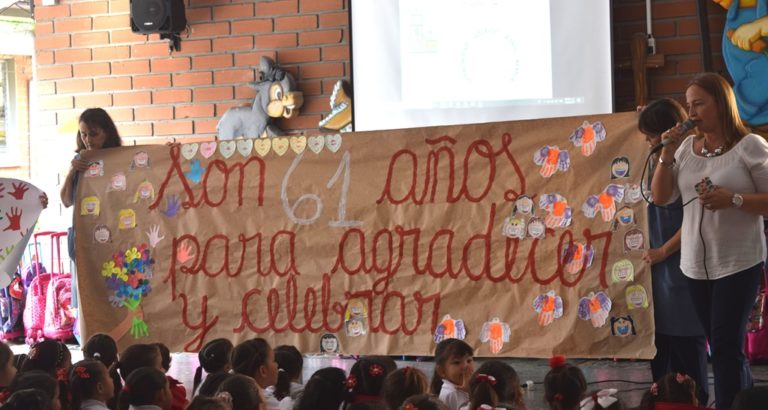 Son 61 años
para agradecer
y celebrar